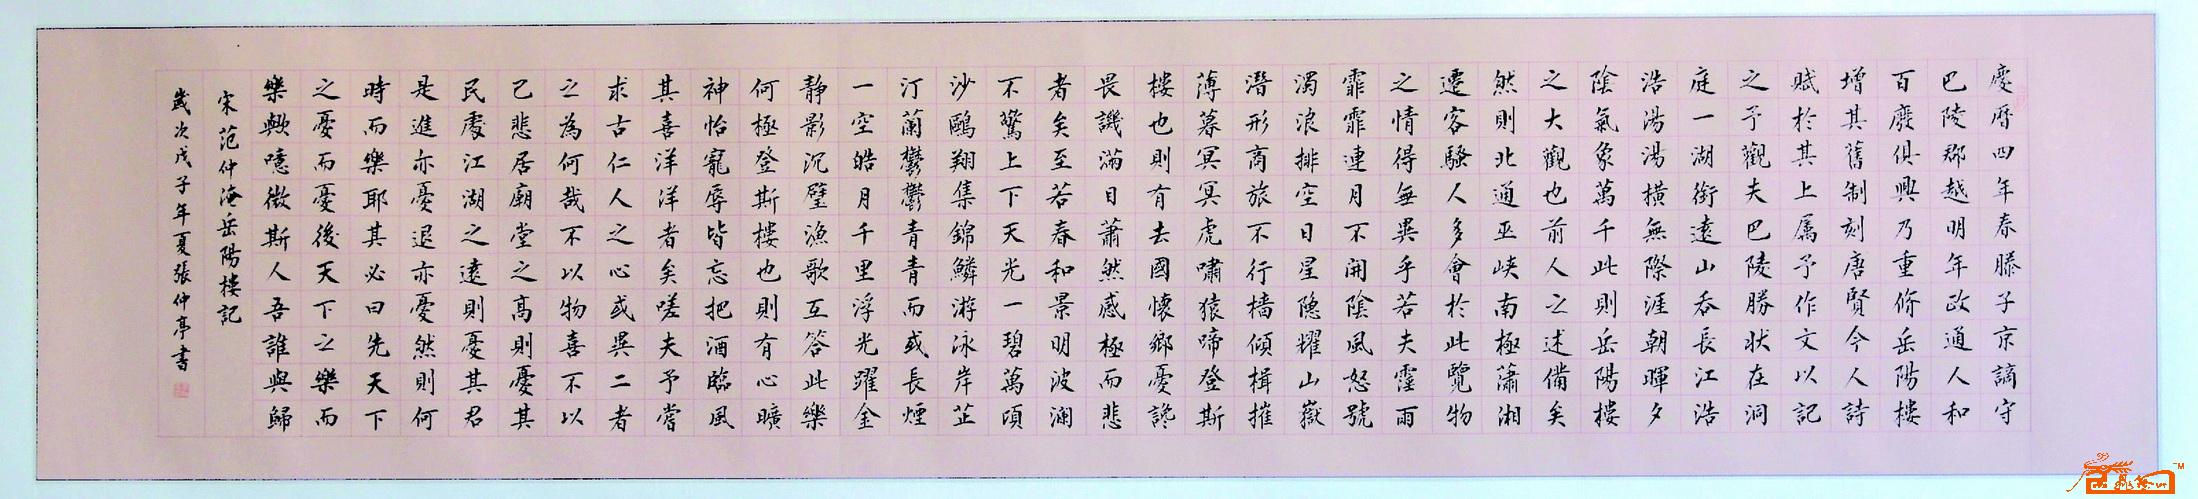 慶曆四年春滕子京謫守
巴陵郡越明年政通人和
百廢俱興乃重脩岳陽樓
增其舊制刻唐賢今人詩
賦於其上属予作文以記
之予觀夫巴陵勝狀在洞
庭一湖銜遠山吞長江浩
浩湯湯橫無際涯朝暉夕
陰氣象萬千此則岳陽樓
之大觀也前人之述備矣
然則北通巫峽南極瀟湘
遷客騷人多會於此覽物
之情得無異乎若夫霪雨
霏霏連月不開陰風怒號
濁浪排空日星隱耀山嶽
潛形商旅不行檣傾楫摧
薄暮冥冥虎嘯猿啼登斯
樓也則有去國懷鄉憂讒
畏譏滿目蕭然感極而悲
者矣至若春和景明波瀾
不驚上下天光一碧萬頃
沙鷗翔集錦鱗游泳岸芷
汀蘭鬱鬱青青而或長煙
一空皓月千里浮光躍金
靜影沉璧漁歌互答此樂
何極登斯樓也則有心曠
神怡寵辱皆忘把酒臨風
其喜洋洋者矣嗟夫予嘗
求古仁人之心或異二者
之為何哉不以物喜不以
己悲居廟堂之高則憂其
民處江湖之遠則憂其君
是進亦憂退亦憂然則何
時而樂耶其必曰先天下
之憂而憂後天下之樂而
樂歟噫微斯人吾誰與歸
宋范仲淹岳陽樓記
歲次戊子年夏張仲亭書